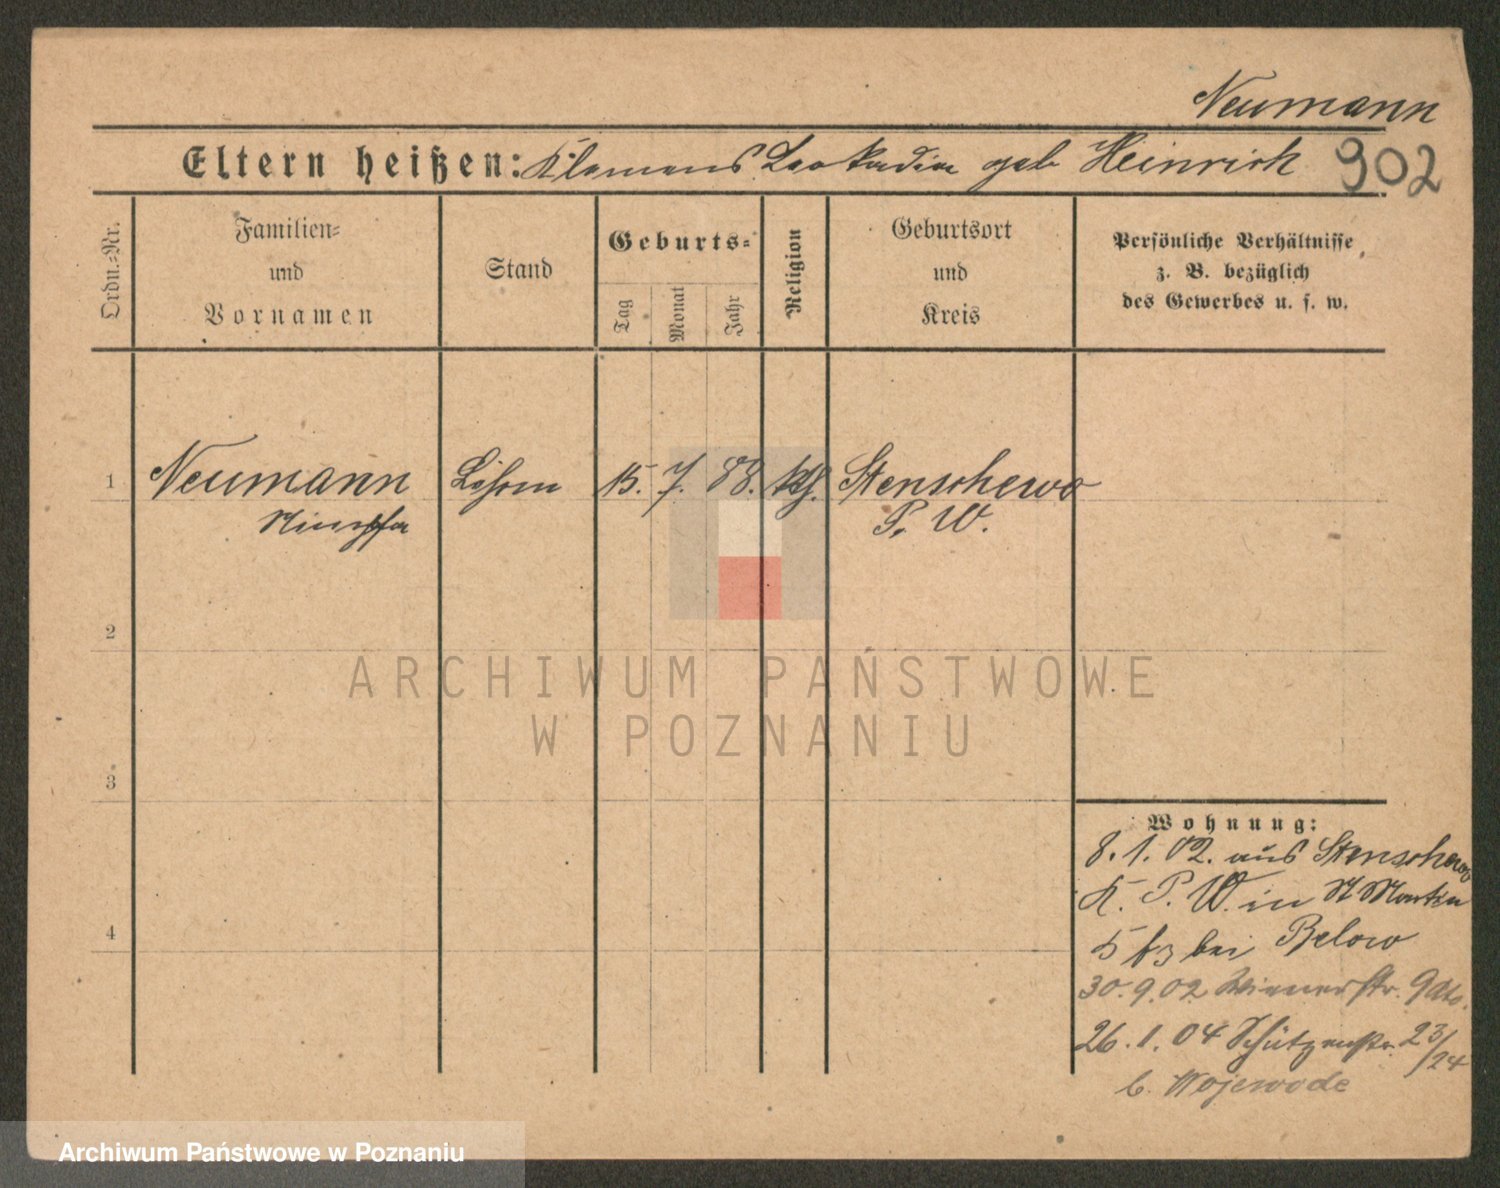 Neumann
Eltern heißen: Klemens Leokadia geb Heinrich 902
Ordn.-Nr.
Familien-
und
Vornamen
Stand
Geburts-
Tag
Monat
Jahr
Religion
Geburtsort
und
Kreis
Persönliche Verhältnisse
z. B. bezüglich
des Gewerbes u. s. w.
1 Neumann 15. 7. 88. kth. Stenschewo
P. W.
2
3
4
ARCHIWUM PAŃSTWOWE
W POZNANIU
Wohnung:
8. 1. 02. aus Stenschewo
K. P. W. in St Martin
bei Below
30. 9. 02 Wienerstr. 9
26. 1. 04 Schützenstr. 23/24
b. Wojewode
Archiwum Państwowe w Poznaniu